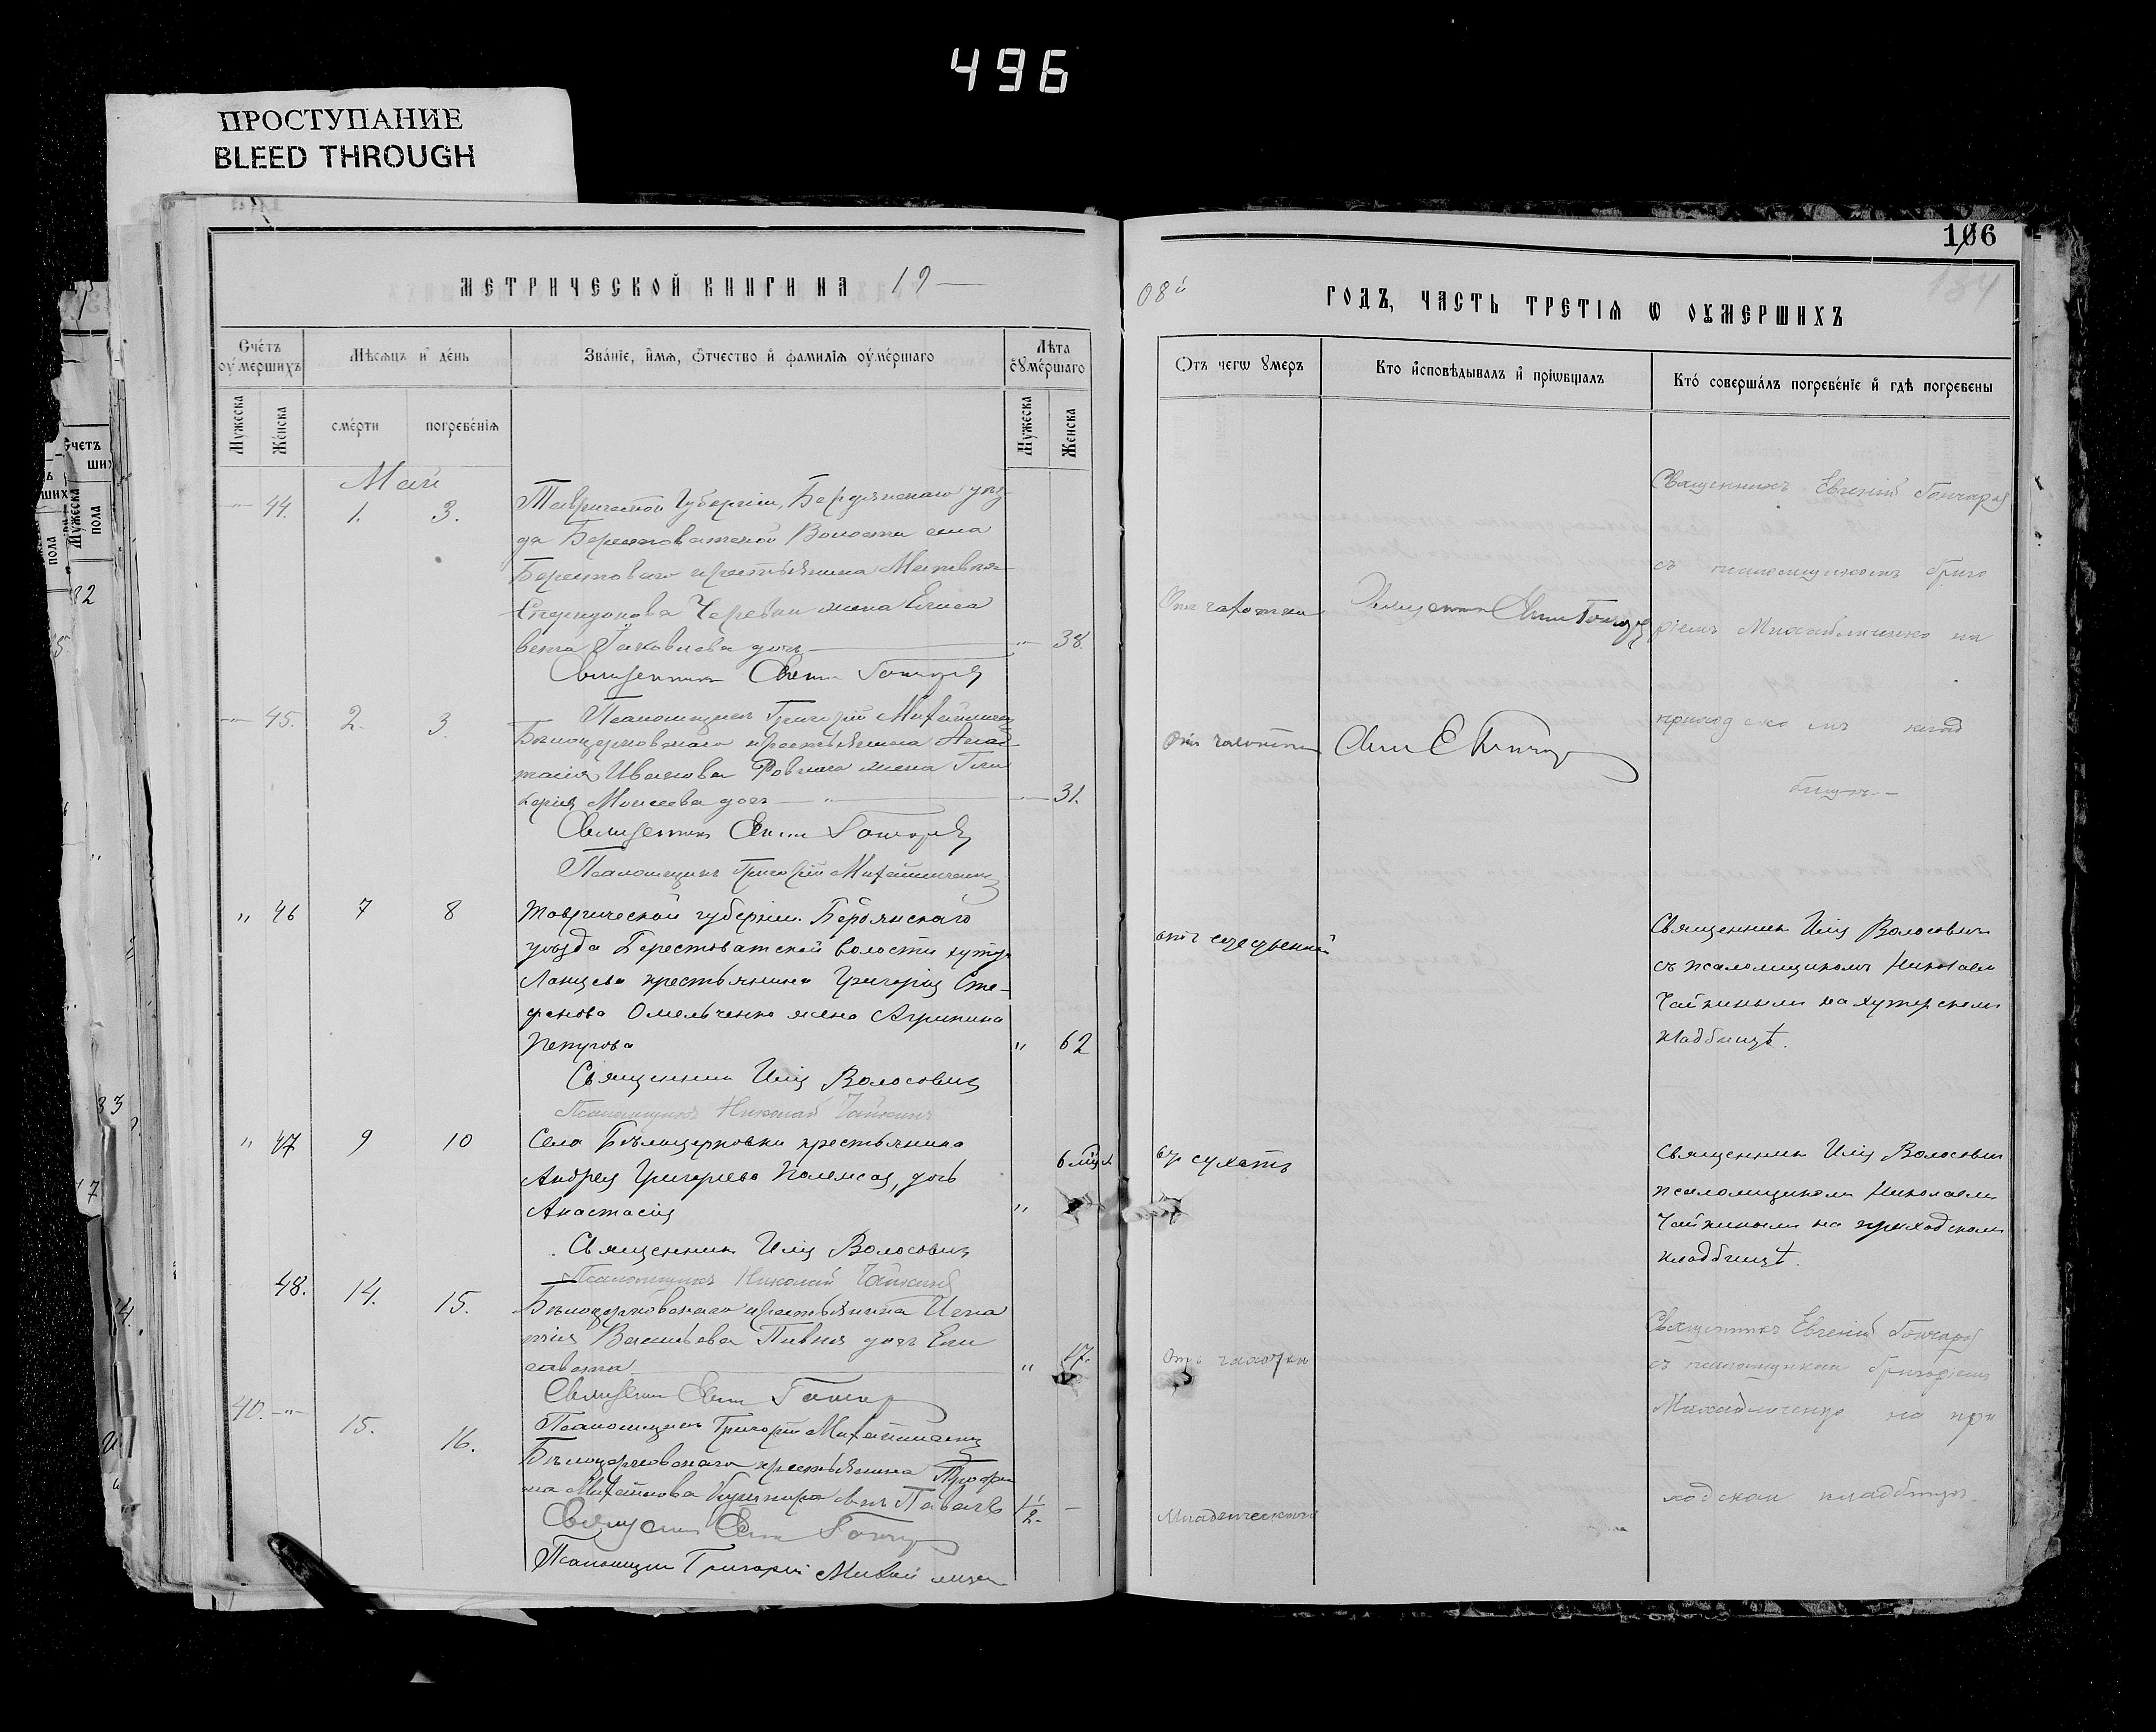 496
ПРОСТУПАНИЕ
BLEED THROUGH
МЕТРИЧЕСКОЙ КНИГИ НА 19
Счетъ оумершихъ
Мѣсяцъ и день
Званіе, имя, отчество и фамилія оумершаго
Лѣта оумершаго
Мужеска
Женска
смерти
погребенія
Мужеска
Женска
Май
44. 1. 3. Таврической Губерніи, Бердянскаго уѣз-
да Берестоватской Волости села
Берестоваго крестьянина Матвѣя
Спиридонова Черевка жена Елиса
вета Яковлева дочь 38.
Священникъ Евгеній Гончаровъ
Псаломщикъ Григорій Михайличенко
45. 2. 3. Бѣлоцерковскаго крестьянина
Иванова жена Гли
керія Моисеева дочь 31.
Священникъ Евгеній Гончаровъ
Псаломщикъ Григорій Михайличенко
" 46 7 8 Таврической губерніи Бердянскаго
уѣзда Берестоватской волости хутор
крестьянина Григорія Сте-
фанова Омельченко жена Агрипина
Петрова " 62
Священникъ Илія Волосовичъ
Псаломщикъ Николай Чайкинъ
" 47 9 10 Села Бѣлоцерковки крестьянина
Андрея Григорьева дочь 6 мѣся
Анастасія "
Священникъ Илія Волосовичъ
Псаломщикъ Николай Чайкинъ
48. 14. 15. Бѣлоцерковскаго крестьянина Игна
тія Васильева Пивня дочь Ели
савета " 17.
Священникъ Евгеній Гончаровъ
Псаломщикъ Григорій Михайличенко
40. 15. 16. Бѣлоцерковскаго крестьянина Трофи
ма Михайлова сынъ Павелъ 1 1/2.
Священникъ Евгеній Гончаровъ
Псаломщикъ Григорій
08й ГОДЪ, ЧАСТЬ ТРЕТІЯ Ѡ ОУМЕРШИХЪ
106
184
Отъ чегѡ умеръ
Кто исповѣдывалъ и пріѡбщалъ
Кто совершалъ погребеніе и гдѣ погребены
Священникъ Евгеній Гончаровъ
съ псаломщикомъ Григо
Отъ чахотки Священникъ Евгеній Гончаровъ
ріемъ Михайличенко на
приходскомъ клад
бищѣ
Отъ чахотки
Священникъ Илія Волосовичъ
съ псаломщикомъ Николаемъ
Чайкинымъ на хуторскомъ
кладбищѣ.
отъ
Священникъ Илія Волосовичъ
псаломщикомъ Николаемъ
Чайкинымъ на приходскомъ
кладбищѣ.
Священникъ Евгеній Гончаровъ
съ псаломщикомъ Григоріемъ
Отъ чахотки
Михайличенко на при
ходскомъ кладбищѣ
Младенческой